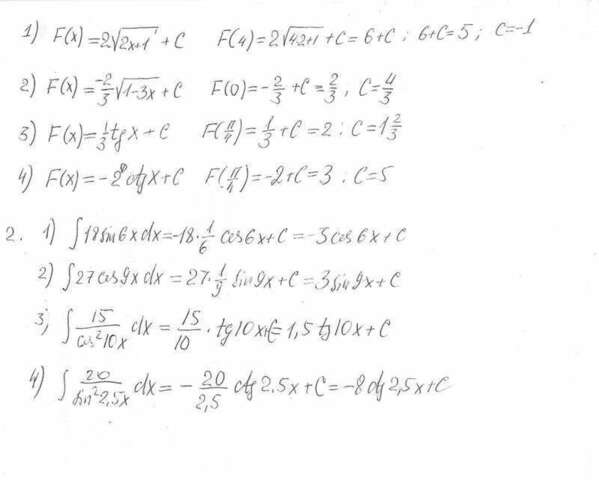 1) F(x)=2√(2x+1) + C F(4)=2√(4·2+1) + C = 6+C ; 6+C=5 ; C=-1
2) F(x)=-2/3 √(1-3x) + C F(0)=-2/3 + C = 2/3 , C=4/3
3) F(x)=1/3 tg x + C F(π/4)=1/3 + C = 2 : C=1 2/3
4) F(x)=-2 ctg x + C F(π/4)=-2+C=3 . C=5
2. 1) ∫18 sin 6x dx = -18·1/6 cos 6x + C = -3 cos 6x + C
2) ∫27 cos 9x dx = 27·1/9 sin 9x + C = 3 sin 9x + C
3) ∫15/cos²10x dx = 15/10 · tg 10x + C = 1,5 tg 10x + C
4) ∫20/sin²2,5x dx = - 20/2,5 ctg 2.5x + C = -8 ctg 2,5x + C